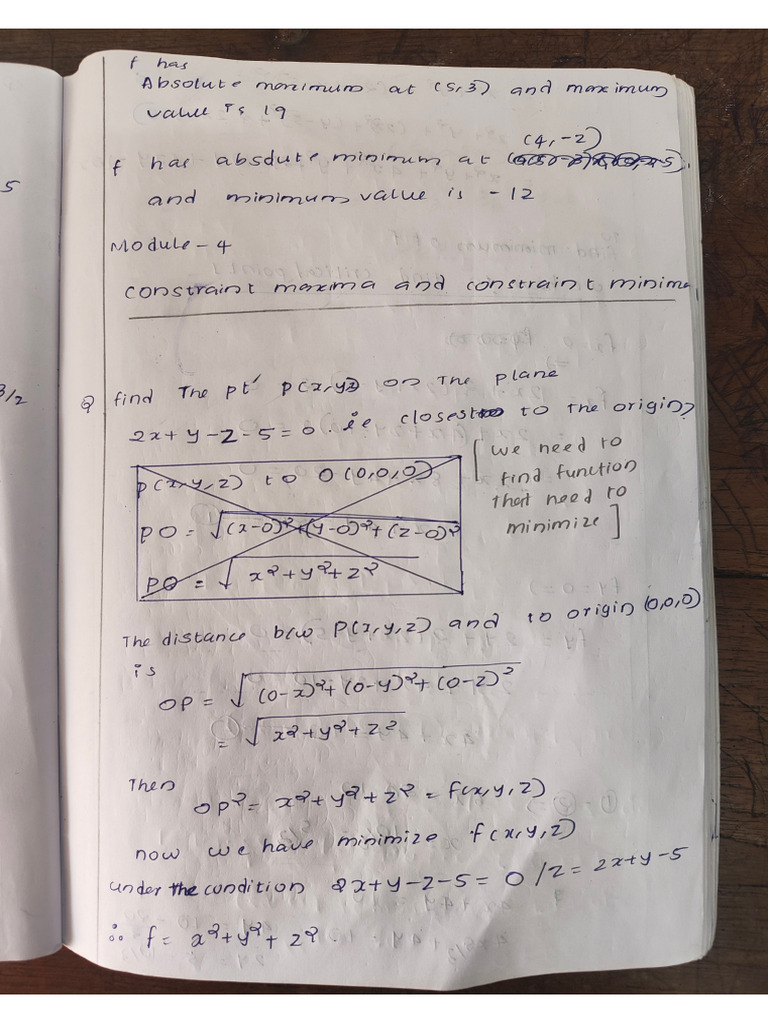 f has
Absolute maximum at (5,3) and maximum
value is 19
(4,-2)
f has absolute minimum at
and minimum value is -12
Module-4
constraint maxima and constraint minima
Q find The pt' P(x,y,z) on The plane
2x+y-z-5=0. ie closest to the origin?
[we need to
find function
that need to
minimize]
P(x,y,z) to O(0,0,0)
PO = √(x-0)²+(y-0)²+(z-0)²
PO = √x²+y²+z²
The distance b/w P(x,y,z) and to origin (0,0,0)
is
OP = √(0-x)²+(0-y)²+(0-z)²
= √x²+y²+z²
Then
OP² = x²+y²+z² = f(x,y,z)
now we have minimize f(x,y,z)
under the condition 2x+y-z-5=0 / z=2x+y-5
∴ f= x²+y²+z².
5
3/2